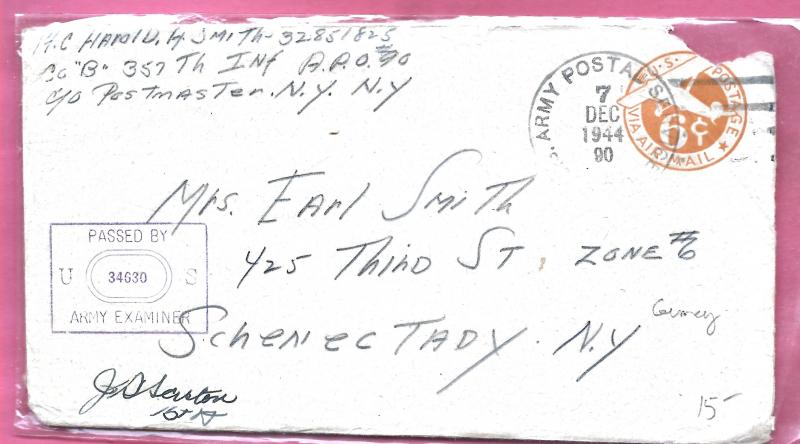 H. Smith - 32851825
Co "B" 357 Th Inf A.P.O. #90
c/o Postmaster. N.Y. N.Y
U.S. POSTAGE
6¢
VIA AIR MAIL
ARMY POSTAL
7
DEC
1944
90
Mrs. Earl Smith
425 Third St. Zone #6
Schenectady. N.Y
PASSED BY
U 34630 S
ARMY EXAMINER
15-